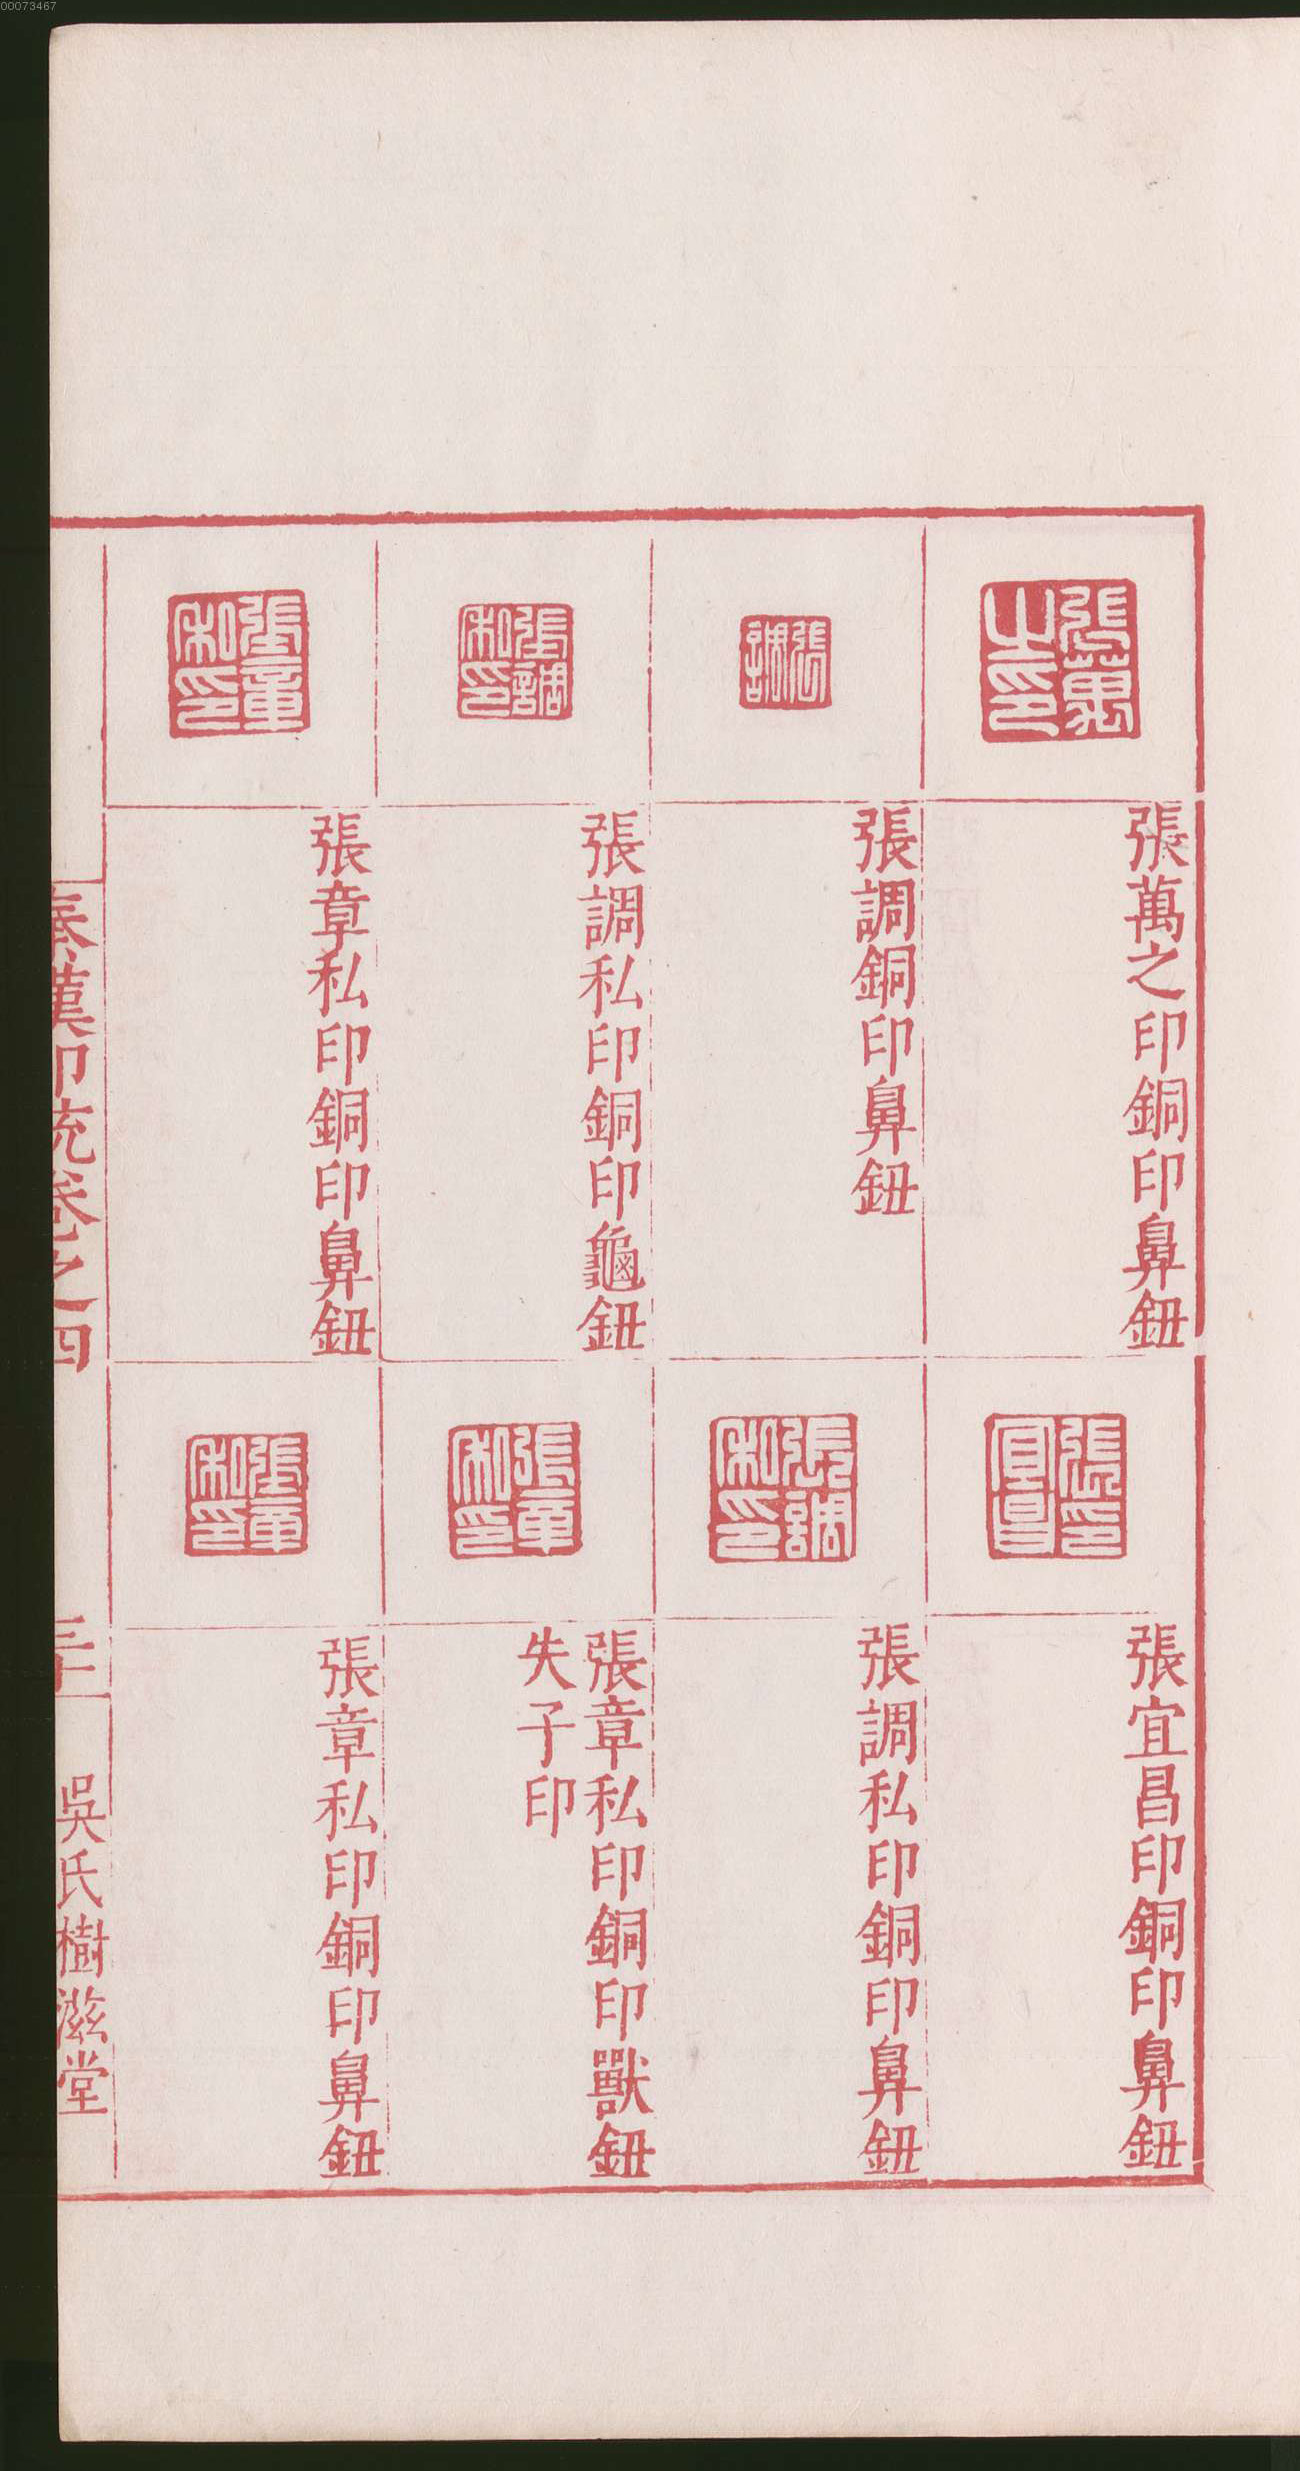 00073467
張萬之印
張萬之印銅印鼻鈕
張調
張調銅印鼻鈕
張調私印
張調私印銅印龜鈕
張章私印
張章私印銅印鼻鈕
張宜昌印
張宜昌印銅印鼻鈕
張調私印
張調私印銅印鼻鈕
張章私印
張章私印銅印獸鈕
失子印
張章私印
張章私印銅印鼻鈕
秦漢印統卷之四
三十
吳氏樹滋堂